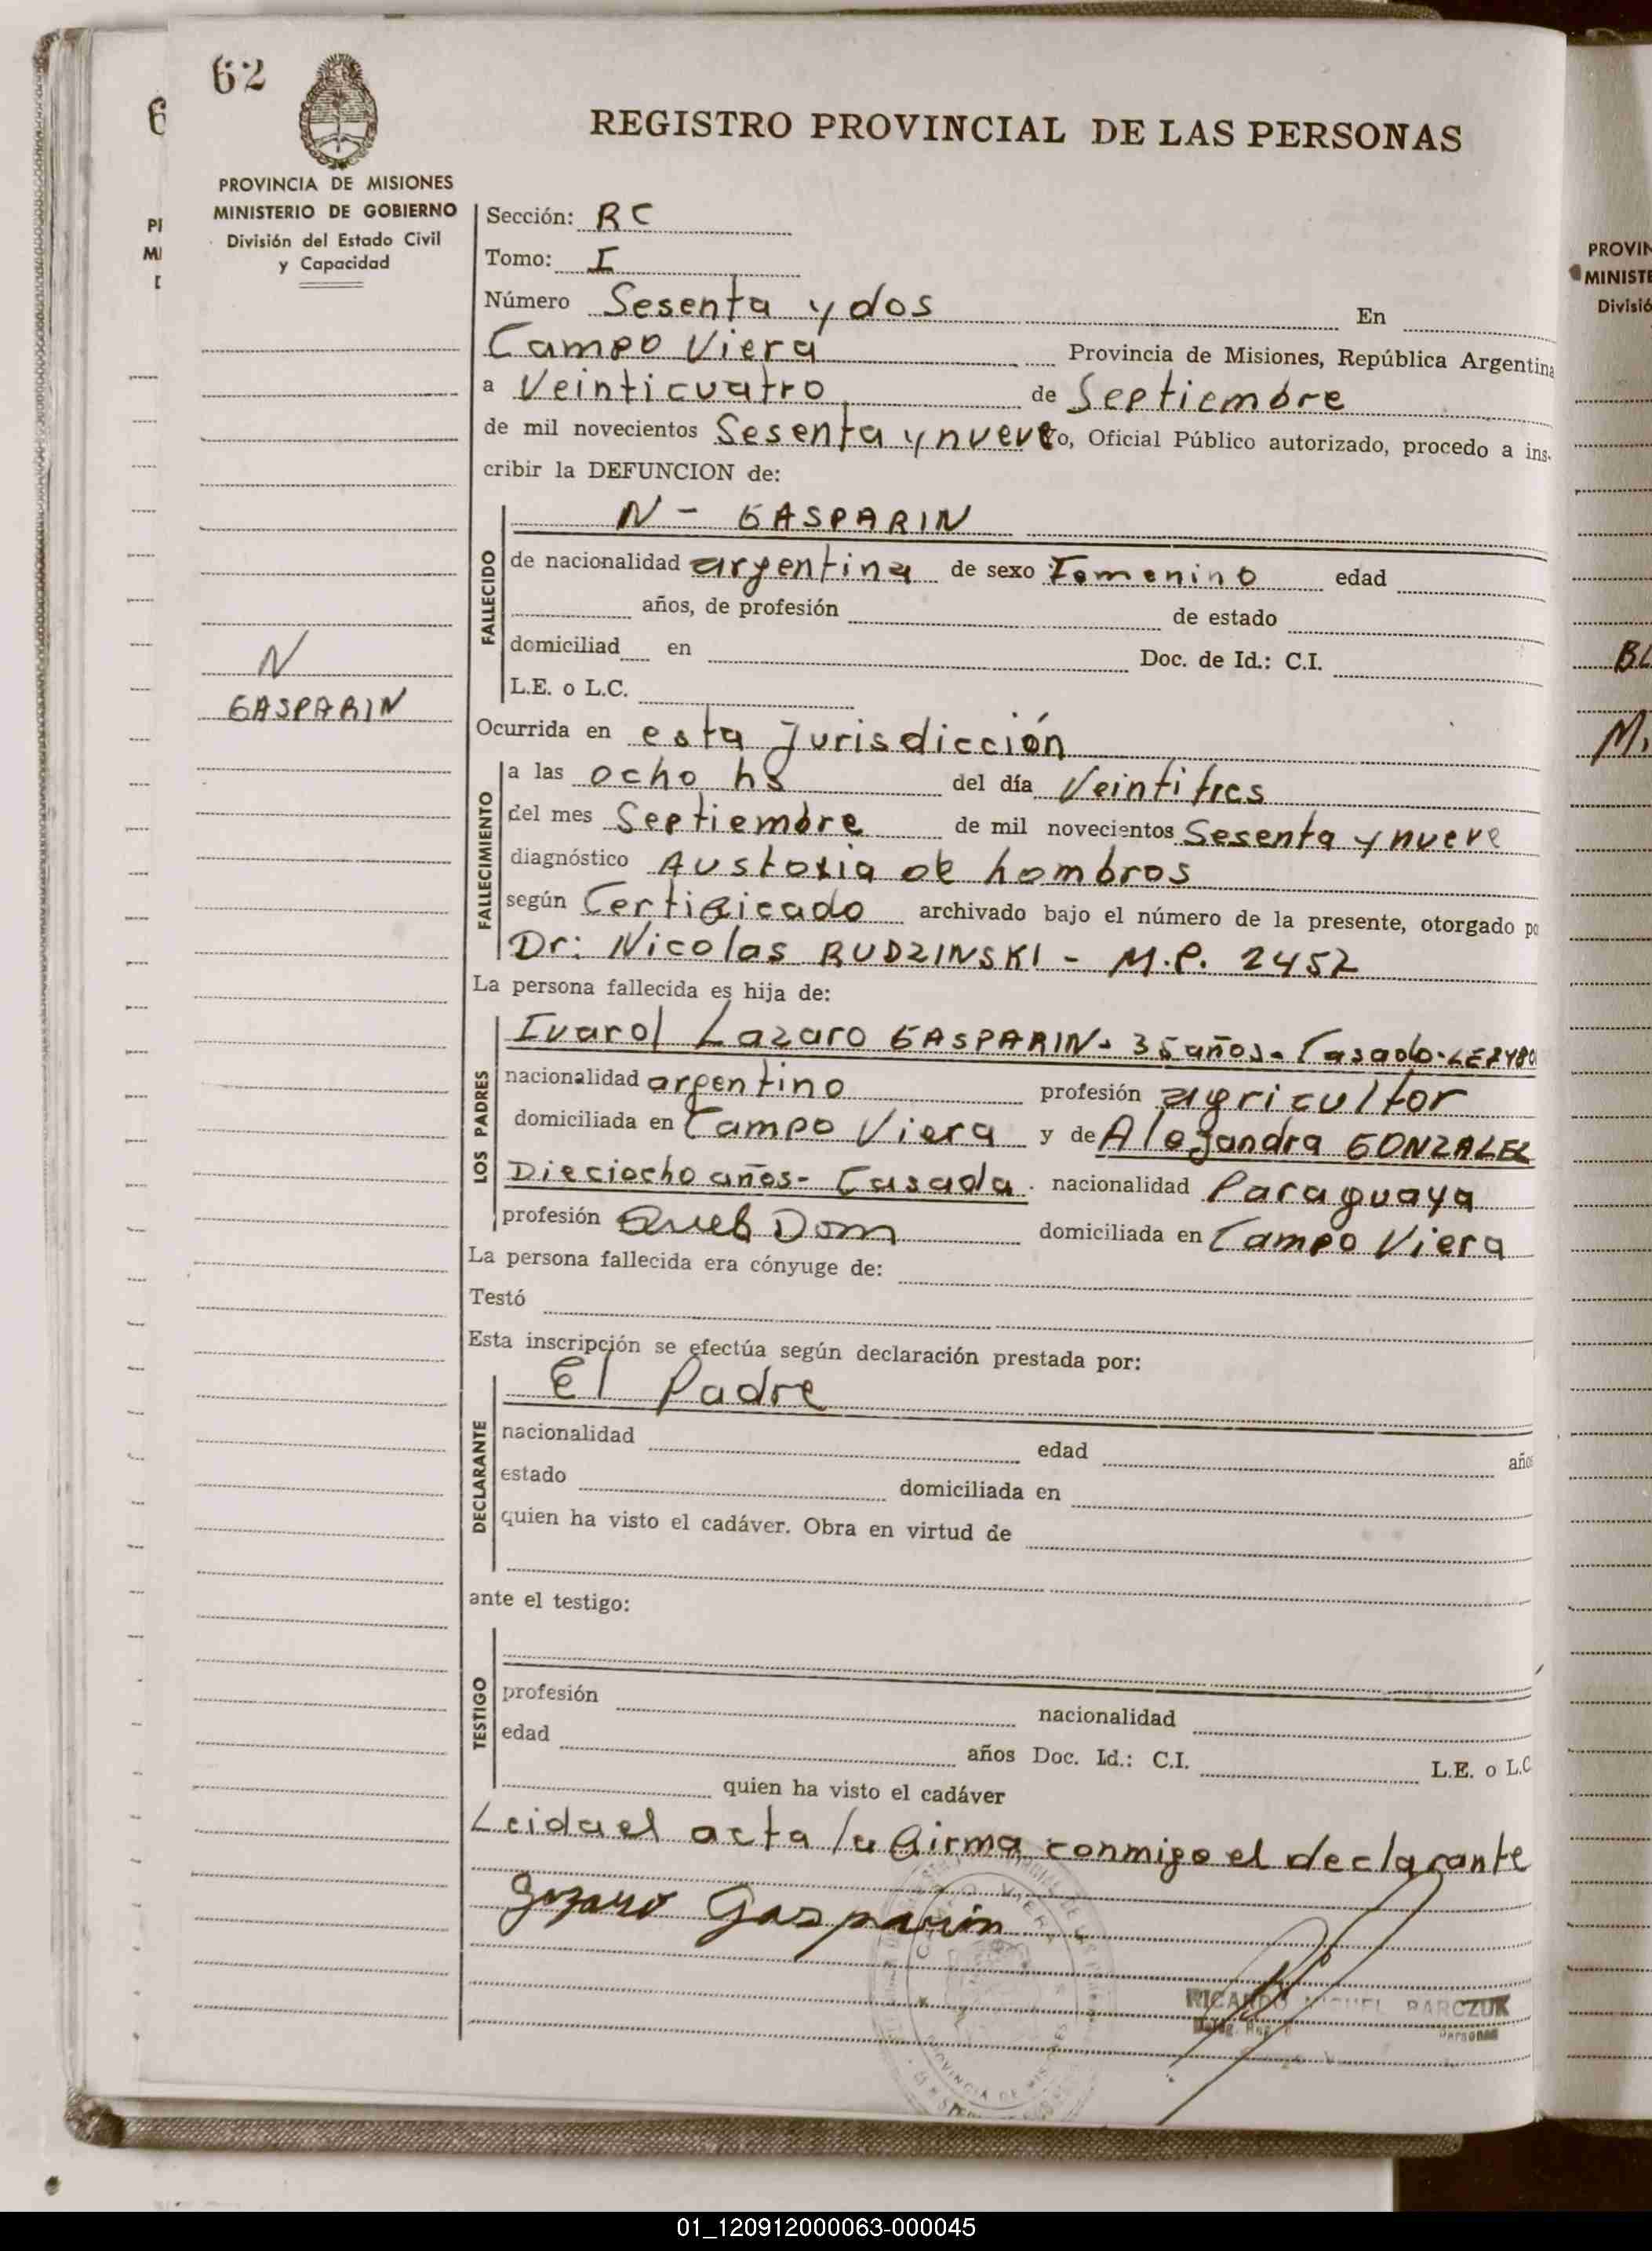 62
REGISTRO PROVINCIAL DE LAS PERSONAS
PROVINCIA DE MISIONES
MINISTERIO DE GOBIERNO
División del Estado Civil
y Capacidad
Sección: RC
Tomo: I
Número Sesenta y dos En
Campo Viera Provincia de Misiones, República Argentina
a Veinticuatro de Septiembre
de mil novecientos Sesenta y nueve yo, Oficial Público autorizado, procedo a ins-
cribir la DEFUNCION de:
N - GASPARIN
FALLECIDO
de nacionalidad argentina de sexo Femenino edad
años, de profesión de estado
domiciliad en Doc. de Id.: C.I.
L.E. o L.C.
N
GASPARIN
Ocurrida en esta Jurisdicción
FALLECIMIENTO
a las ocho hs del día Veintitres
del mes Septiembre de mil novecientos Sesenta y nueve
diagnóstico de hombros
según Certificado archivado bajo el número de la presente, otorgado po
Dr: Nicolas RUDZINSKI - M.P. 2452
La persona fallecida es hija de:
LOS PADRES
Lazaro GASPARIN - 35 años - Casado -
nacionalidad argentino profesión agricultor
domiciliada en Campo Viera y de Alejandra GONZALEZ
Dieciocho años - Casada. nacionalidad Paraguaya
profesión Queh Dom domiciliada en Campo Viera
La persona fallecida era cónyuge de:
Testó
Esta inscripción se efectúa según declaración prestada por:
El Padre
DECLARANTE
nacionalidad edad años
estado domiciliada en
quien ha visto el cadáver. Obra en virtud de
ante el testigo:
TESTIGO
profesión nacionalidad
edad años Doc. Id.: C.I. L.E. o L.C
quien ha visto el cadáver
Leida el acta la firma conmigo el declarante
Gasparin
RICARDO MIGUEL BARCZUK
01_120912000063-000045